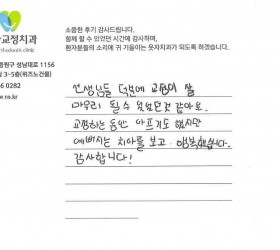 교정치과
thodontic clinic
원구 성남대로 1156
3-5층(위즈노건물)
6 0282
e.co.kr
소중한 후기 감사드립니다.
함께 할 수 있었던 시간에 감사하며,
환자분들의 소리에 귀 기울이는 웃자치과가 되도록 하겠습니다.
선생님들 덕분에 교정이 잘
마무리 될수 있었던것 같아요.
교정하는 동안 아프기도 했지만
예뻐지는 치아를 보고 행복했습니다.
감사합니다!